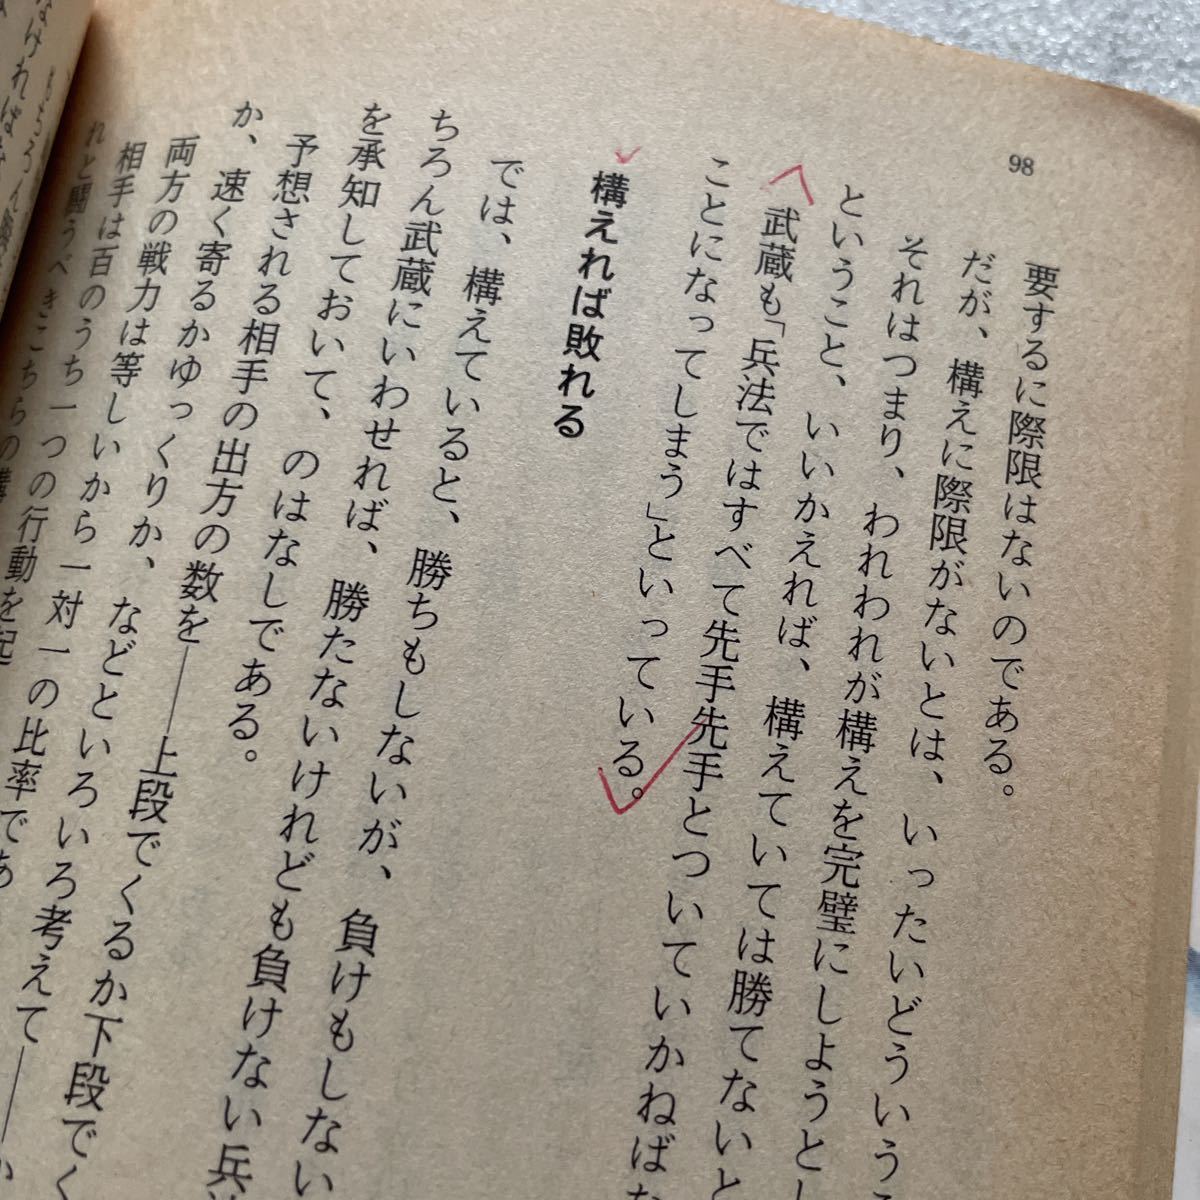 98
要するに際限はないのである。
だが、構えに際限がないとは、いったいどういうこ
それはつまり、われわれが構えを完璧にしようとし
ということ、いいかえれば、構えていては勝てないと
武蔵も「兵法ではすべて先手先手とついていかねばな
ことになってしまう」といっている。
構えれば敗れる
では、構えていると、勝ちもしないが、負けもしない
ちろん武蔵にいわせれば、勝たないけれども負けない兵法
を承知しておいて、のはなしである。
予想される相手の出方の数を――上段でくるか下段でく
か、速く寄るかゆっくりか、などといろいろ考えて――
両方の戦力は等しいから一対一の比率であ
相手は百のうち一つの行動を起
れと闘うべきこちらの構
もちろん
なければな